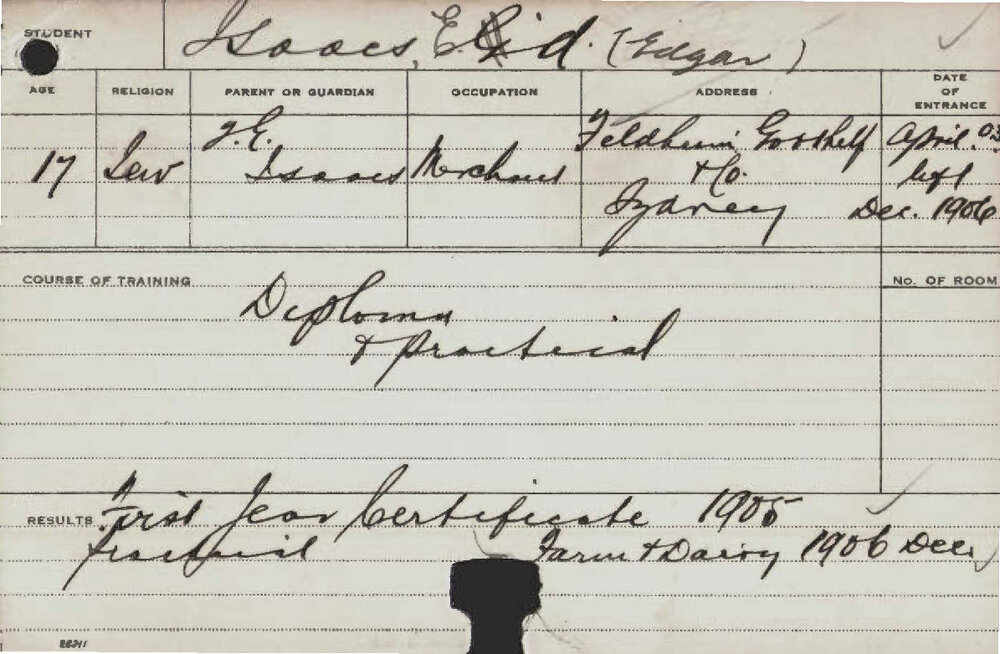 STUDENT Isaacs, E. d. (Edgar)
AGE RELIGION PARENT OR GUARDIAN OCCUPATION ADDRESS DATE OF ENTRANCE
17 Jew J. E. Isaacs Merchant Feldheim Gotthelf & Co. Sydney April. 03. left Dec. 1906
COURSE OF TRAINING No. OF ROOM
Diploma
& Practical
RESULTS. First Year Certificate 1905
Practical Farm & Dairy 1906 Dec.